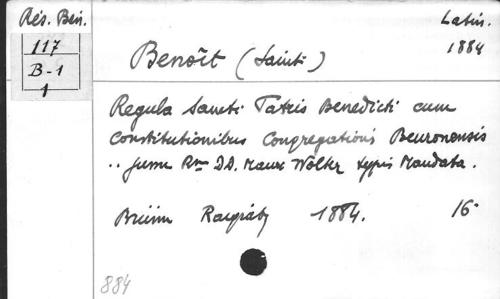 Rés. Ben.
Latin.
1884
117
B-1
1
Benoît (Saint)
Regula Sancti Patris Benedicti cum
Constitutionibus Congregationis Beuronensis
.. jussu Rmi DD. Mauri Wolter typis Mandata.
Brünn 1884. 16°
884